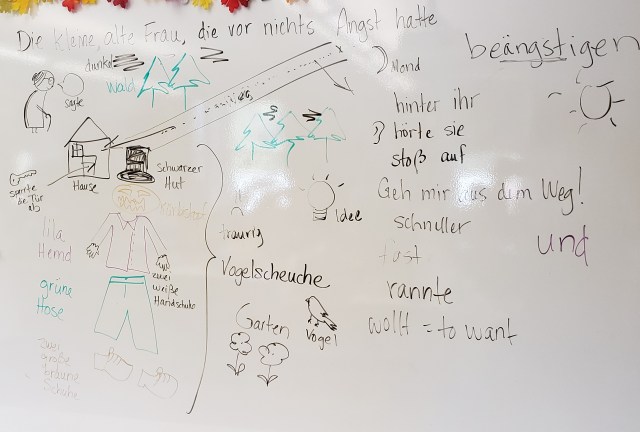 Die kleine, alte Frau, die vor nichts Angst hatte
dunkel
Wald
sagte
Haus
sperrte
die Tür
ab
Schwarzer
Hut
Kürbiskopf
lila
Hemd
zwei
weiße
Handschuhe
grüne
Hose
zwei
große
braune
Schuhe
traurig
Idee
Vogelscheuche
Garten
Vogel
Mond
hinter ihr
hörte sie
stoß auf
Geh mir aus dem Weg!
schneller
fast
rannte
wollt = to want
beängstigen
und